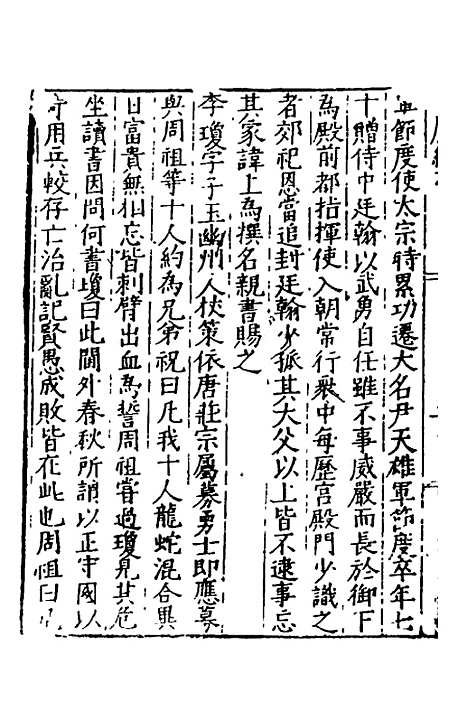 節度使太宗時累功遷大名尹天雄軍節度卒年七
十贈侍中廷翰以武勇自任雖不事威嚴而長於御下
為殿前都指揮使入朝常行衆中每歷宮殿門少識之
者郊祀恩當追封廷翰少孤其大父以上皆不逮事忘
其家諱上為撰名親書賜之
李瓊字子玉幽州人杖策依唐莊宗屬募勇士即應募
與周祖等十人約為兄弟祝曰凡我十人龍蛇混合異
日富貴無相忘皆刺臂出血為誓周祖甞過瓊見其危
坐讀書因問何書瓊曰此閫外春秋所謂以正守國以
奇用兵較存亡治亂記賢愚成敗皆在此也周祖曰